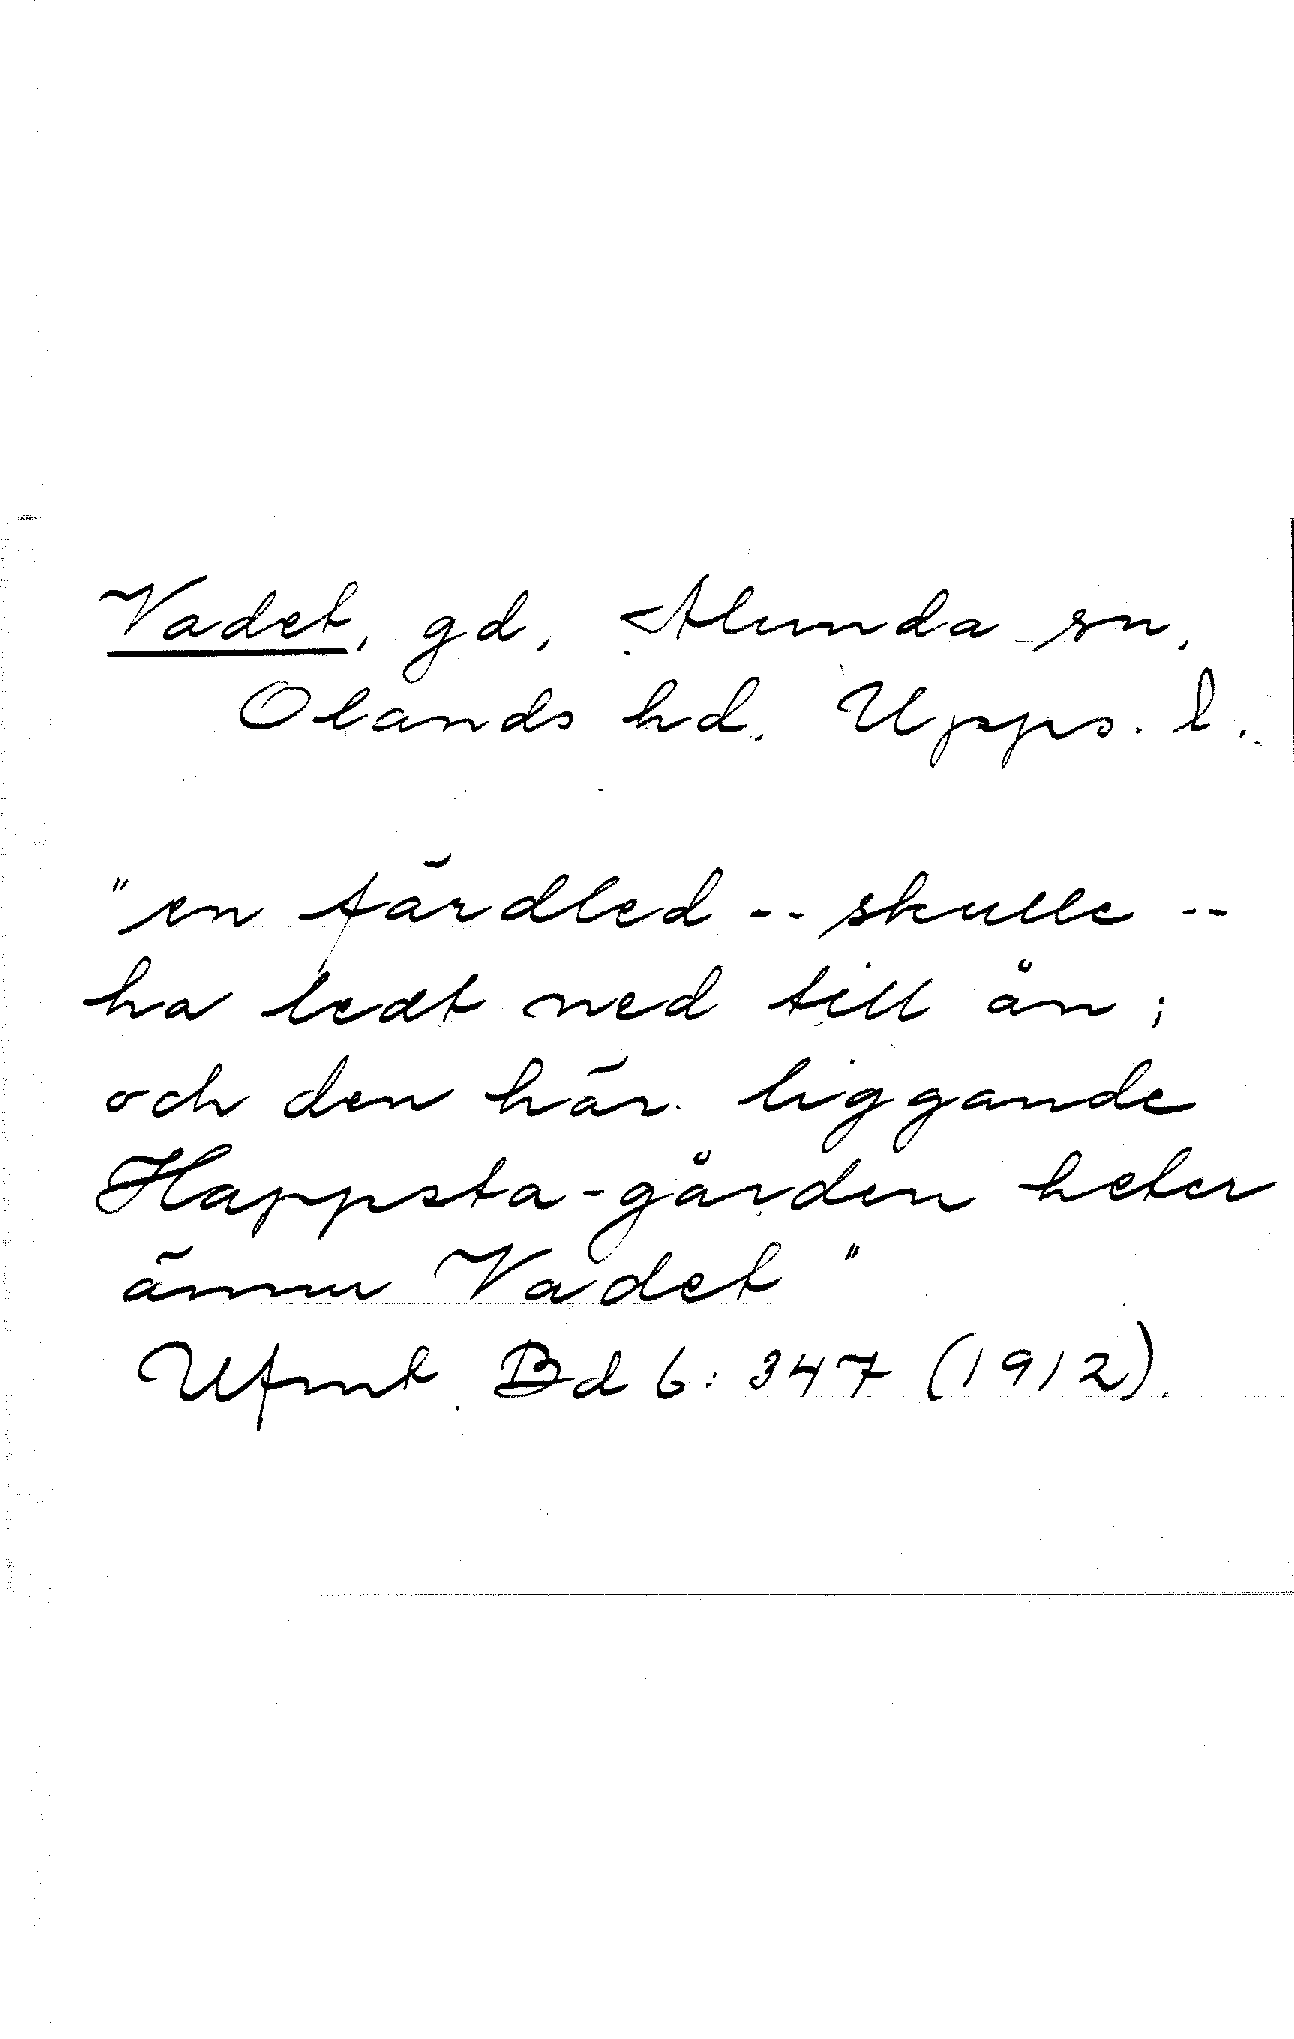 Vadet, gd, Alunda sn,
Olands hd. Upps. l.
"en färdled -- skulle --
ha ledt ned till ån;
och den här liggande
Happsta-gården heter
ännu Vadet"
Ufmt Bd 6: 347 (1912).